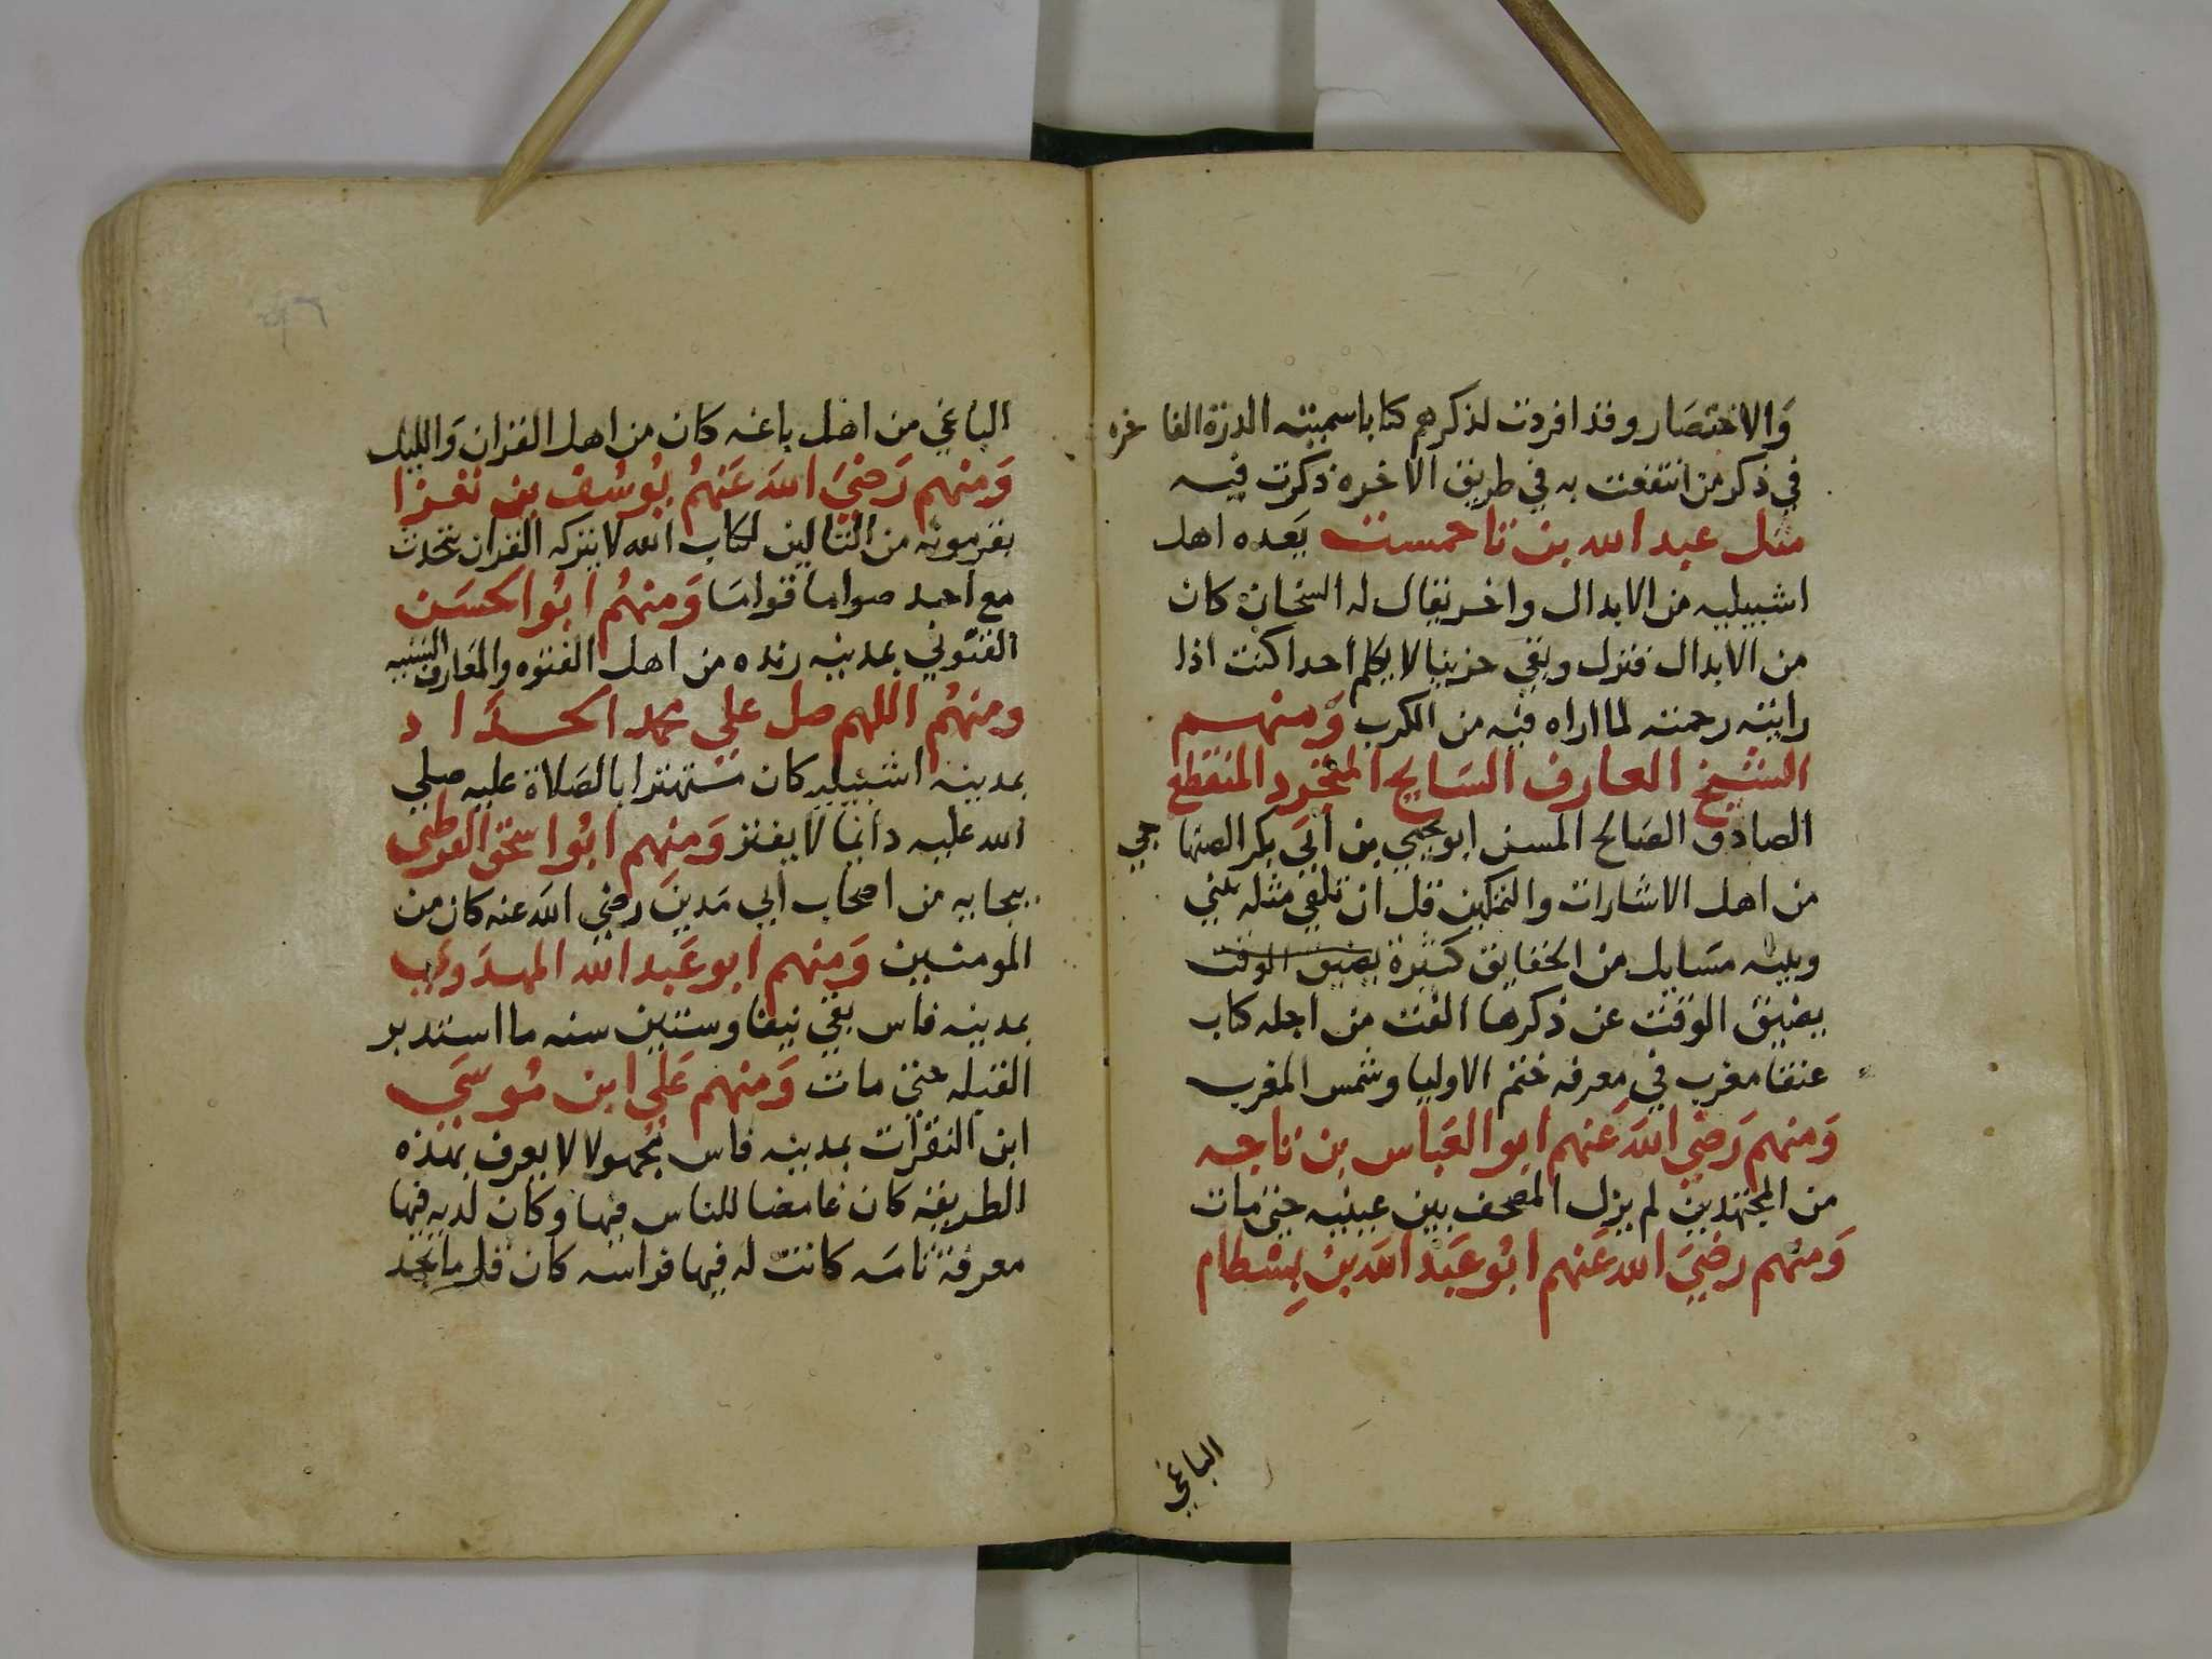 وَالاختصَار وقد افردت لذكرهم كتابا سميته الدرة الفاخره
في ذكر من انتفعت به في طريق الاخره ذكرت فيه
مثل عبد الله بن تاحمست يَعده اهل
اشبيليه من الابدال واخر يقال له السخان كان
من الابدال فنزل وبقي حزينا لا يكلم احدا كنت اذا
رايته رحمته لما اراه فيه من الكرب وَمنهم
الشيخ العارف السَايح المتجرد المنقطع
الصادق الصَالح المسن ابو يحيي بن أبي بكر الصنهاجي
من اهل الاشارات والتمكين قل ان تلقي مثله بيني
وبينه مسَايل من الحقايق كثيرة يضيق الوقت
يضيق الوقت عن ذكرها الفت من اجله كتاب
عنقا مغرب في معرفه ختم الاوليا وشمس المغرب
وَمنهم رَضي اللهَ عَنهم ابو العَباس بن تاجه
من المجتهدين لم يزل المصحف بين عينيه حتي مات
وَمنهم رضيَ الله عَنهم ابُو عَبد الله بنُ بِسْطام
الباغي
الباغي من اهل باغه كان من اهل القران وَالليل
وَمنهم رَضيَ اللهَ عَنهُم يُوسُف بن تعزا
بقرمونه من التالين لكتاب الله لا يترك القران يتحدث
مع احد صواما قوامَا وَمنهُم ابُو الحسَن
القنوني بمدينه رنده من اهل الفتوه والمعَارف السنيه
ومنهُم اللهم صل علي محمد الحدَّاد
بمدينه اشبيليه كان مستهترا بالصَلاة عليه صلي
الله عليه دائما لا يفتر وَمنهم ابُو اسحق القرطبي
ببجايه من اصحاب أبي مَدينَ رضي اللهَ عنه كان من
المومنين وَمنهم ابو عَبد الله المهدَوي
بمدينه فاس بقي نيفا وستين سنه ما استدبر
القبله حتي مات وَمنهم عَلي ابن مُوسَي
ابن النقرات بمدينه فاس مجهولا لا يعرف بهذه
الطريقه كان غامضا للناس فيها وكان لديه فيها
معرفة تامَه كانت له فيها فراسه كان قل ما يجد